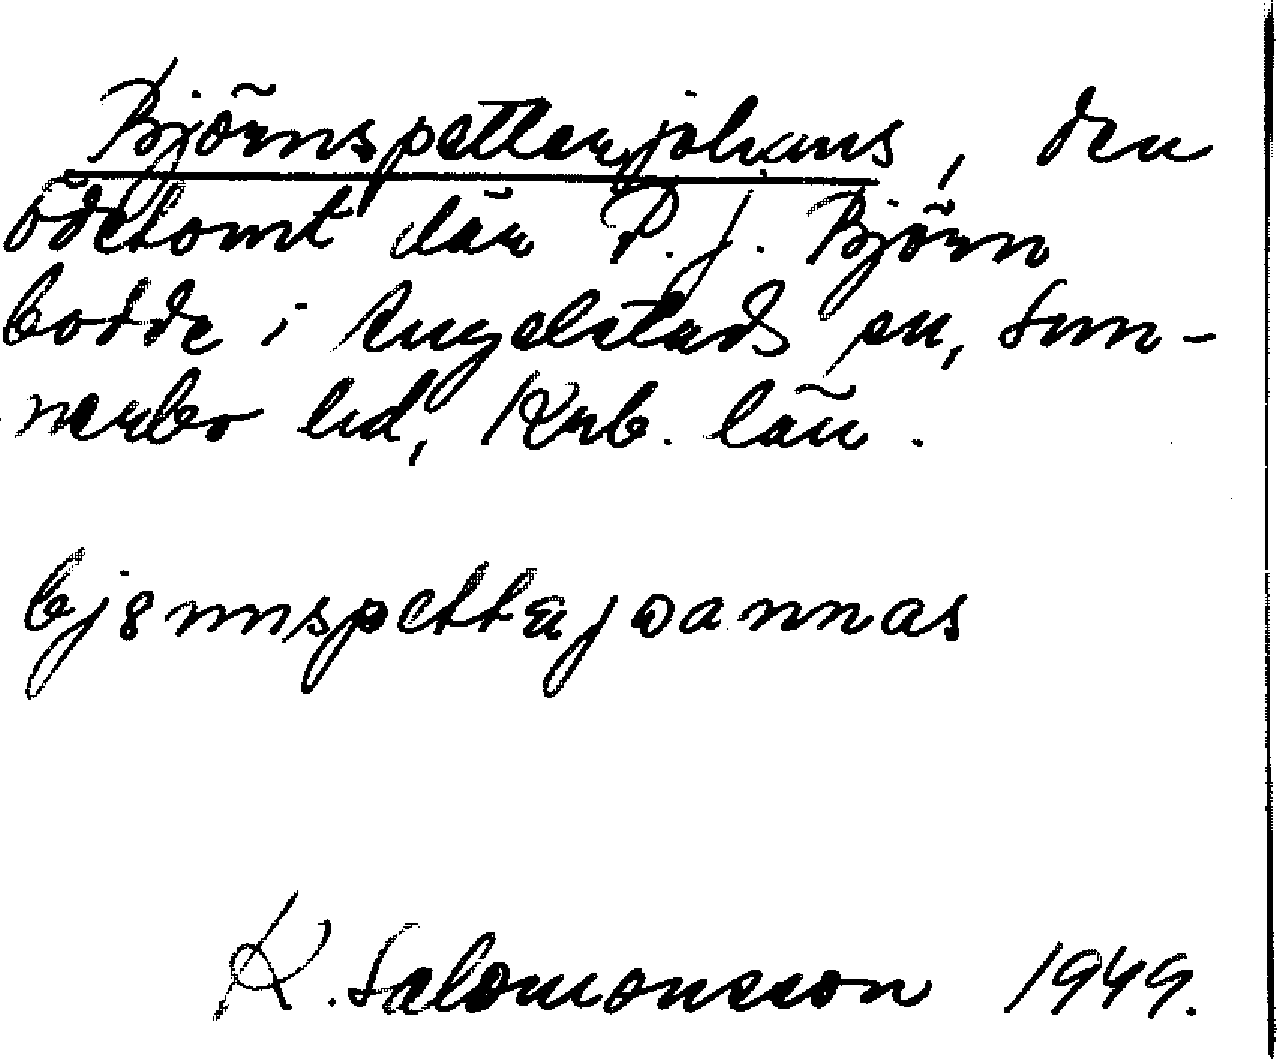 Björnspetterjohans, den
ödetomt där P. J. Björn
bodde i Angelstads sn, Sun-
nerbo hd, Krb. län.
bjennspettajoannas
K. Salomonsson 1949.